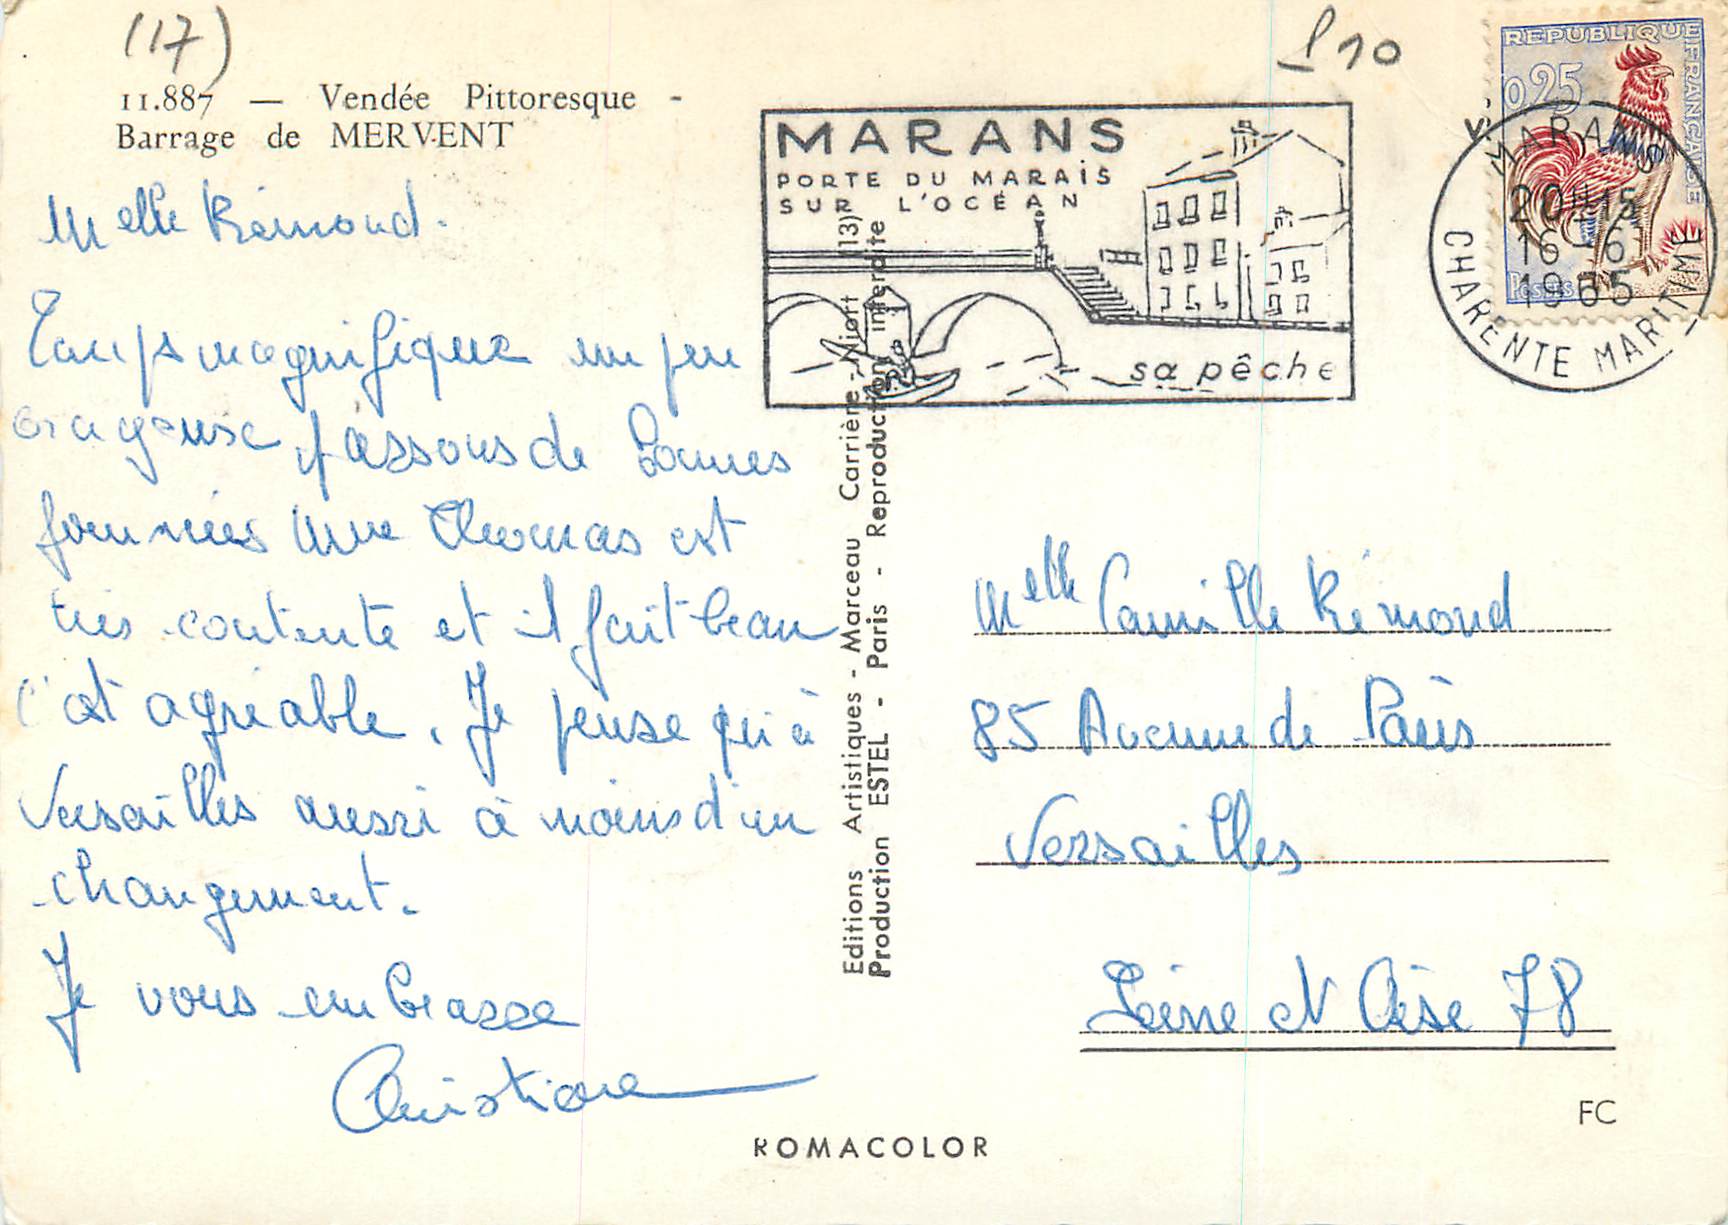 (17)
11.887 — Vendée Pittoresque -
Barrage de MERVENT
Melle Rémond.
Temps magnifique un peu
orageuse, passons de bonnes
journées Mme Thomas est
très contente et il fait beau
c'est agréable. Je pense qu'à
Versailles aussi à moins d'un
changement.
Je vous embrasse
Christiane
MARANS
PORTE DU MARAIS
SUR L'OCÉAN
sa pêche
REPUBLIQUE FRANÇAISE
0,25
Postes
MARANS
20H15
16-6
1965
CHARENTE MARITIME
Editions Artistiques - Marceau Carrière - Niort (13)
Production ESTEL - Paris - Reproduction interdite
Melle Camille Rémond
85 Avenue de Paris
Versailles
Seine et Oise 78
FC
ROMACOLOR